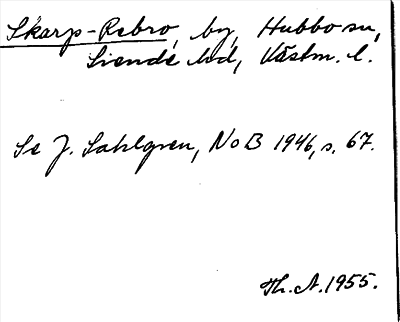 Skarp-Rebro, by, Hubbo sn,
Siende hd, Västm. l.
Se J. Sahlgren, NoB 1946, s. 67.
Th. A. 1955.